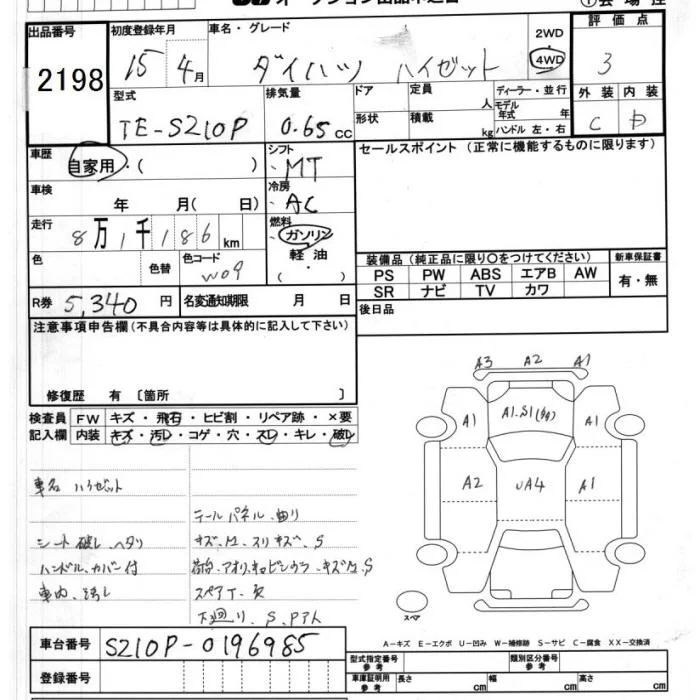 出品番号
2198
初度登録年月
15年 4月
車名・グレード
ダイハツ ハイゼット
2WD
4WD
評価点
3
型式
TE-S210P
排気量
0.65 cc
ドア
形状
定員
人
積載
kg
ディーラー・並行
モデル年式 年
ハンドル 左・右
外装 内装
C D
車歴
自家用・( )
シフト
MT
セールスポイント (正常に機能するものに限ります)
車検
年 月( 日)
冷房
AC
走行
8万1千186km
燃料
ガソリン
軽油
( ・ )
色
色替
色コード
W09
装備品 (純正品に限り〇をつけてください)
新車保証書
PS PW ABS エアB AW
有・無
SR ナビ TV カワ
R券 5,340円
名変通知期限 月 日
後日品
注意事項申告欄(不具合内容等は具体的に記入して下さい)
修復歴 有 [箇所 ]
検査員
記入欄
FW キズ・飛石・ヒビ割・リペア跡・×要
内装 キズ・汚レ・コゲ・穴・スレ・キレ・破レ
A3 A2 A1
A1.S1
A1
A1
A2
UA4
A1
車名 ハイゼット
テールパネル、曲り
シート破レ、ヘタリ
キズ、M.スリキズ、S
ハンドル、カバー付
車内、汚レ
スペアT、欠
下廻り、S、Pアト
スペア
A-キズ E-エクボ U-凹み W-補修跡 S-サビ C-腐食 XX-交換済
車台番号
S210P-0196985
登録番号
型式指定番号
参考
類別区分番号
参考
車庫証明用
参考
長さ cm
幅 cm
高さ cm